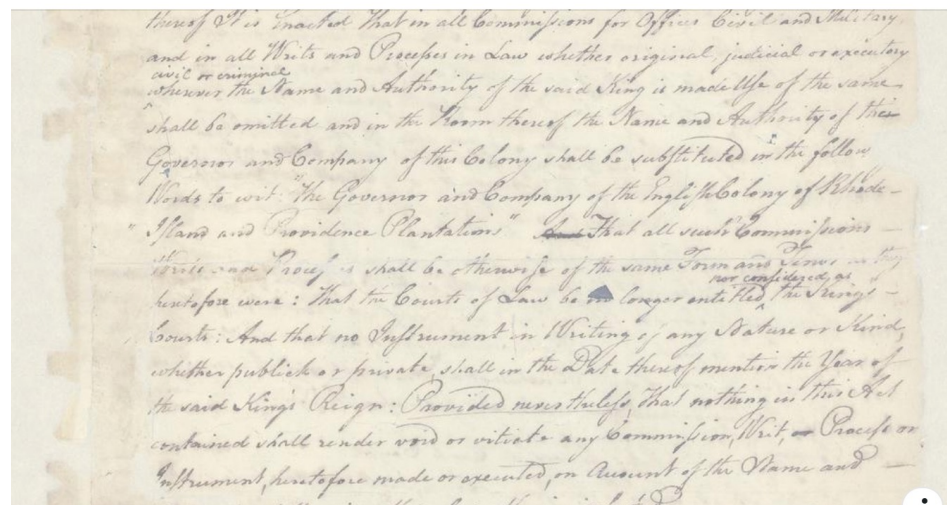 thereof It is Enacted That in all Commissions for Offices Civil and Military
and in all Writs and Processes in Law whether original, judicial or executory
civil or criminal
wherever the Name and Authority of the said King is made Use of the same
shall be omitted and in the Room thereof the Name and Authority of the
Governor and Company of this Colony shall be substituted in the follow
Words to wit: "The Governor and Company of the English Colony of Rhode-
" Island and Providence Plantations" And That all such Commissions
Writs and Process is shall be otherwise of the same Form and Tenor as they
nor considered as
heretofore were: That the Courts of Law be no longer entitled the Kings
Courts: And that no Instrument in Writing of any Nature or Kind,
whether publick or private, shall in the Date thereof mention the Year of
the said King's Reign: Provided nevertheless, that nothing in this Act
contained shall render void or vitiate any Commission, Writ, or Process or
Instrument, heretofore made or executed, on Account of the Name and